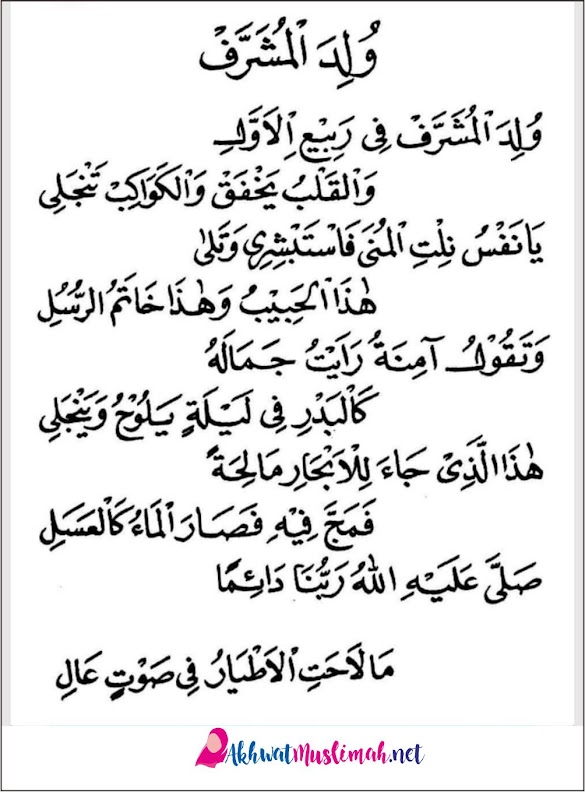 وُلِدَ الْمُشَرَّفْ
وُلِدَ الْمُشَرَّفْ فِى رَبِيْعِ الْاَوَّلِ
وَالْقَلْبُ يَخْفَقْ وَالْكَوَاكِبْ تَنْجَلِى
يَا نَفْسُ نِلْتِ الْمُنَى فَاسْتَبْشِرِى وَتَلٰى
هٰذَا الْحَبِيْبُ وَهٰذَا خَاتَمُ الرُّسُلِ
وَتَقُوْلُ آمِنَةُ رَاَيْتُ جَمَالَهُ
كَالْبَدْرِ فِى لَيْلَةٍ يَلُوْحُ وَيَنْجَلِى
هٰذَا الَّذِىْ جَاءَ لِلْاَبْحَارِ مَالِحَةً
فَمَجَّ فِيْهِ فَصَارَ الْمَاءُ كَالْعَسَلِ
صَلَّى عَلَيْهِ اللّٰهُ رَبُّنَا دَائِمًا
مَا لَاحَتِ الْاَطْيَارُ فِى صَوْتٍ عَالِ
AkhwatMuslimah.net